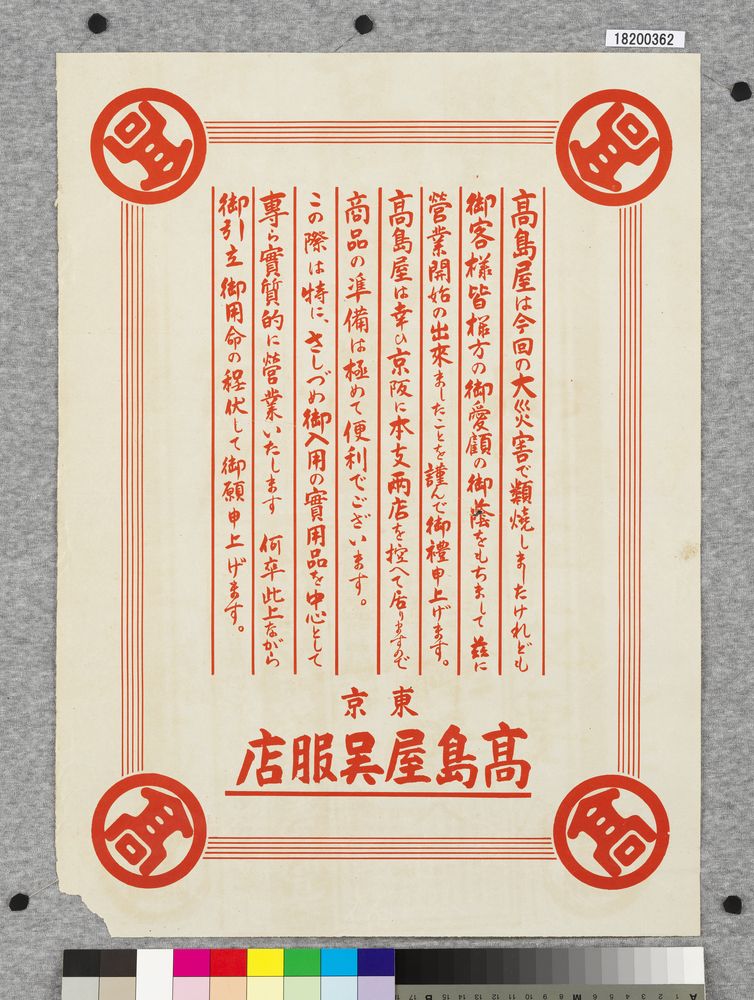 18200362
髙島屋は今回の大災害で類燒しましたけれども
御客樣皆樣方の御愛顧の御蔭をもちまして 玆に
營業開始の出來ましたことを謹んで御禮申上げます。
髙島屋は幸ひ京阪に本支兩店を控へて居りますので
商品の準備は極めて便利でございます。
この際は特に、さしづめ御入用の實用品を中心として
專ら實質的に營業いたします 何卒此上ながら
御引立 御用命の程伏して御願申上げます。
東京
髙島屋呉服店
髙
髙
髙
髙